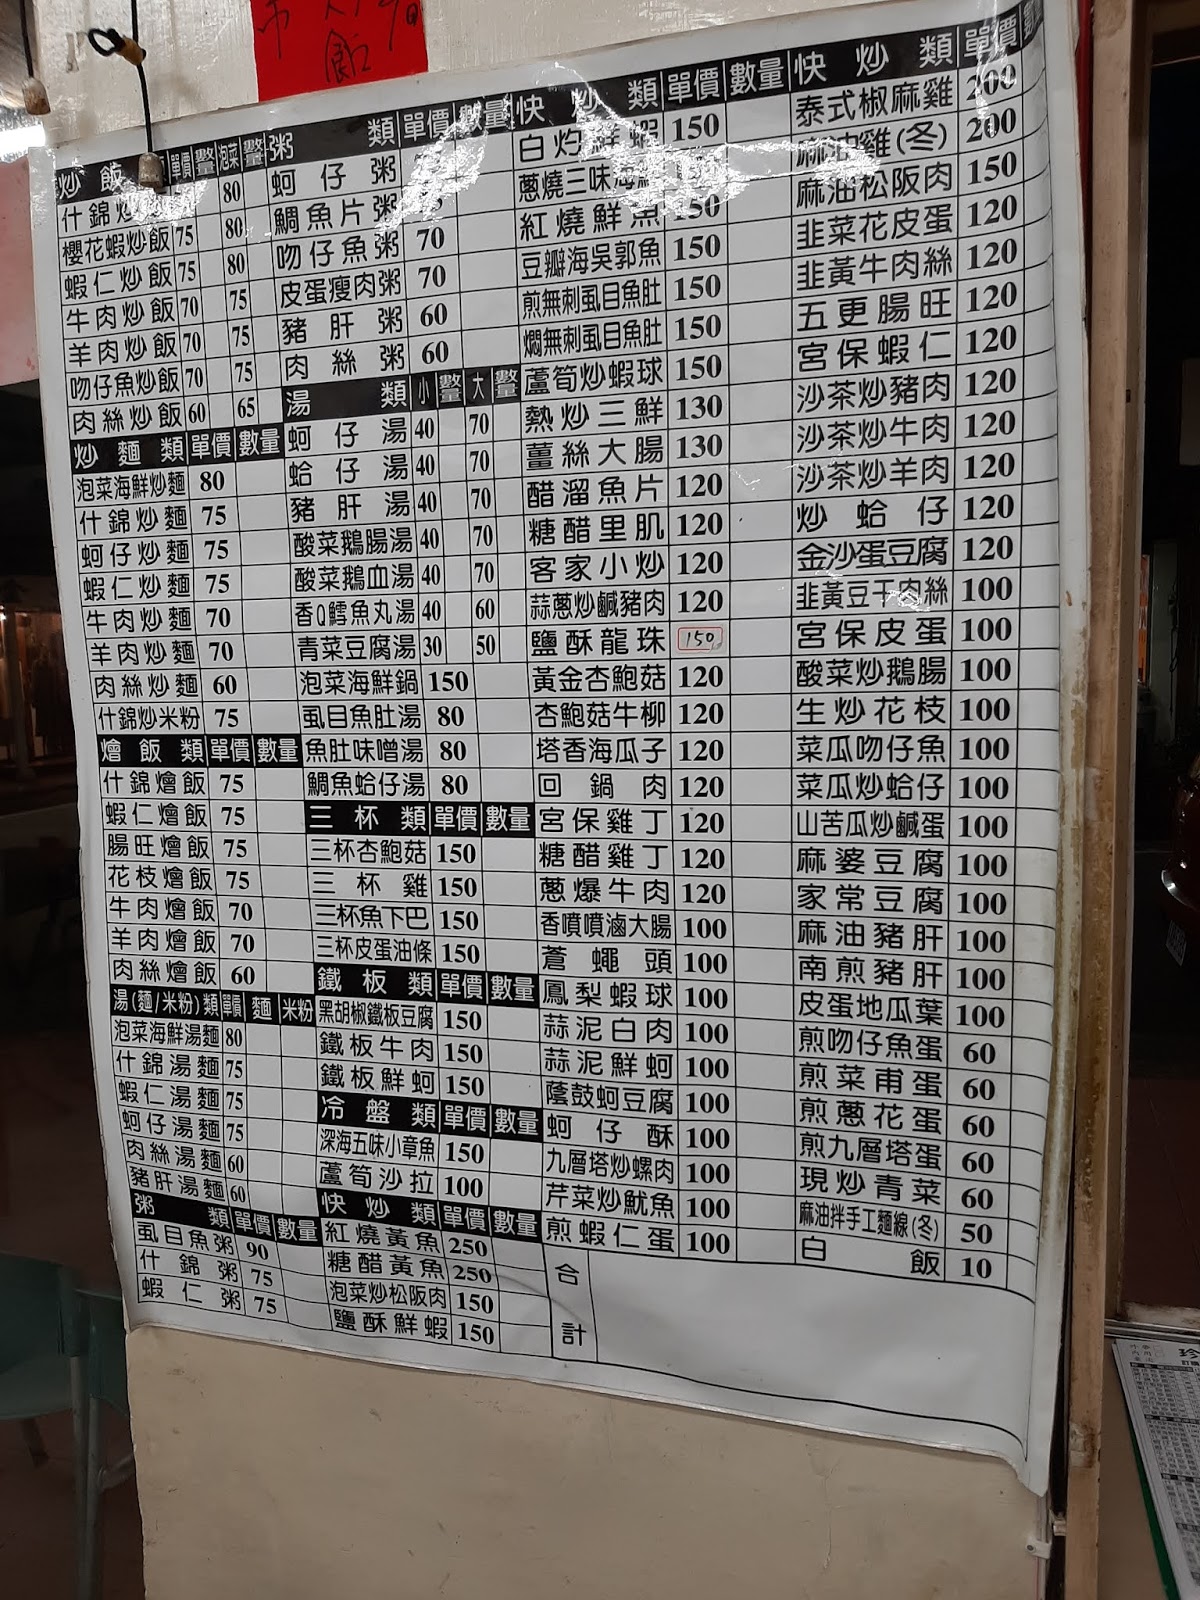 炒飯 單價 數 泡菜 數量
什錦炒 80
櫻花蝦炒飯 75 80
蝦仁炒飯 75 80
牛肉炒飯 70 75
羊肉炒飯 70 75
吻仔魚炒飯 70 75
肉絲炒飯 60 65
炒麵類 單價 數量
泡菜海鮮炒麵 80
什錦炒麵 75
蚵仔炒麵 75
蝦仁炒麵 75
牛肉炒麵 70
羊肉炒麵 70
肉絲炒麵 60
什錦炒米粉 75
燴飯類 單價 數量
什錦燴飯 75
蝦仁燴飯 75
腸旺燴飯 75
花枝燴飯 75
牛肉燴飯 70
羊肉燴飯 70
肉絲燴飯 60
湯(麵/米粉)類 單價 麵 米粉
泡菜海鮮湯麵 80
什錦湯麵 75
蝦仁湯麵 75
蚵仔湯麵 75
肉絲湯麵 60
豬肝湯麵 60
粥類 單價 數量
虱目魚粥 90
什錦粥 75
蝦仁粥 75
粥類 單價 數量
蚵仔粥
鯛魚片粥
吻仔魚粥 70
皮蛋瘦肉粥 70
豬肝粥 60
肉絲粥 60
湯類 小 數量 大 數量
蚵仔湯 40 70
蛤仔湯 40 70
豬肝湯 40 70
酸菜鵝腸湯 40 70
酸菜鵝血湯 40 70
香Q鱈魚丸湯 40 60
青菜豆腐湯 30 50
泡菜海鮮鍋 150
虱目魚肚湯 80
魚肚味噌湯 80
鯛魚蛤仔湯 80
三杯類 單價 數量
三杯杏鮑菇 150
三杯雞 150
三杯魚下巴 150
三杯皮蛋油條 150
鐵板類 單價 數量
黑胡椒鐵板豆腐 150
鐵板牛肉 150
鐵板鮮蚵 150
冷盤類 單價 數量
深海五味小章魚 150
蘆筍沙拉 100
快炒類 單價 數量
紅燒黃魚 250
糖醋黃魚 250
泡菜炒松阪肉 150
鹽酥鮮蝦 150
快炒類 單價 數量
白灼鮮蝦 150
蔥燒三味海
紅燒鮮魚 150
豆瓣海吳郭魚 150
煎無刺虱目魚肚 150
燜無刺虱目魚肚 150
蘆筍炒蝦球 150
熱炒三鮮 130
薑絲大腸 130
醋溜魚片 120
糖醋里肌 120
客家小炒 120
蒜蔥炒鹹豬肉 120
鹽酥龍珠 150
黃金杏鮑菇 120
杏鮑菇牛柳 120
塔香海瓜子 120
回鍋肉 120
宮保雞丁 120
糖醋雞丁 120
蔥爆牛肉 120
香噴噴滷大腸 100
蒼蠅頭 100
鳳梨蝦球 100
蒜泥白肉 100
蒜泥鮮蚵 100
蔭鼓蚵豆腐 100
蚵仔酥 100
九層塔炒螺肉 100
芹菜炒魷魚 100
煎蝦仁蛋 100
合計
快炒類 單價 數
泰式椒麻雞 200
麻油雞(冬) 200
麻油松阪肉 150
韭菜花皮蛋 120
韭黃牛肉絲 120
五更腸旺 120
宮保蝦仁 120
沙茶炒豬肉 120
沙茶炒牛肉 120
沙茶炒羊肉 120
炒蛤仔 120
金沙蛋豆腐 120
韭黃豆干肉絲 100
宮保皮蛋 100
酸菜炒鵝腸 100
生炒花枝 100
菜瓜吻仔魚 100
菜瓜炒蛤仔 100
山苦瓜炒鹹蛋 100
麻婆豆腐 100
家常豆腐 100
麻油豬肝 100
南煎豬肝 100
皮蛋地瓜葉 100
煎吻仔魚蛋 60
煎菜甫蛋 60
煎蔥花蛋 60
煎九層塔蛋 60
現炒青菜 60
麻油拌手工麵線(冬) 50
白飯 10